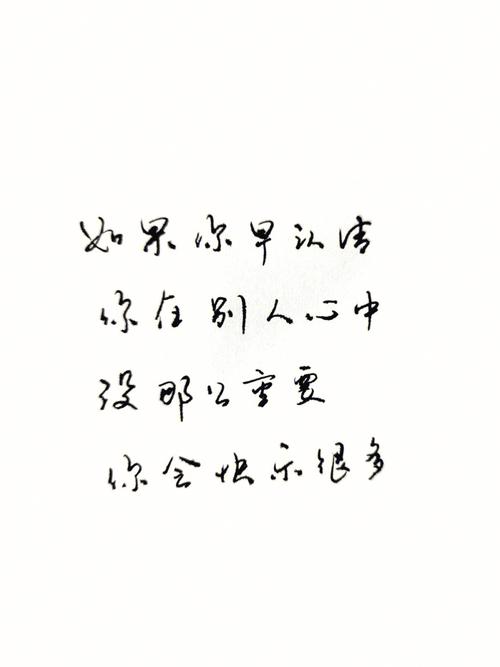 如果你早认清
你在别人心中
没那么重要
你会快乐很多